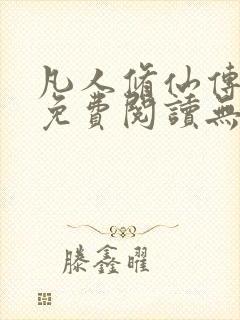 凡人脩仙傳
免費閱讀無
滕鑫曜